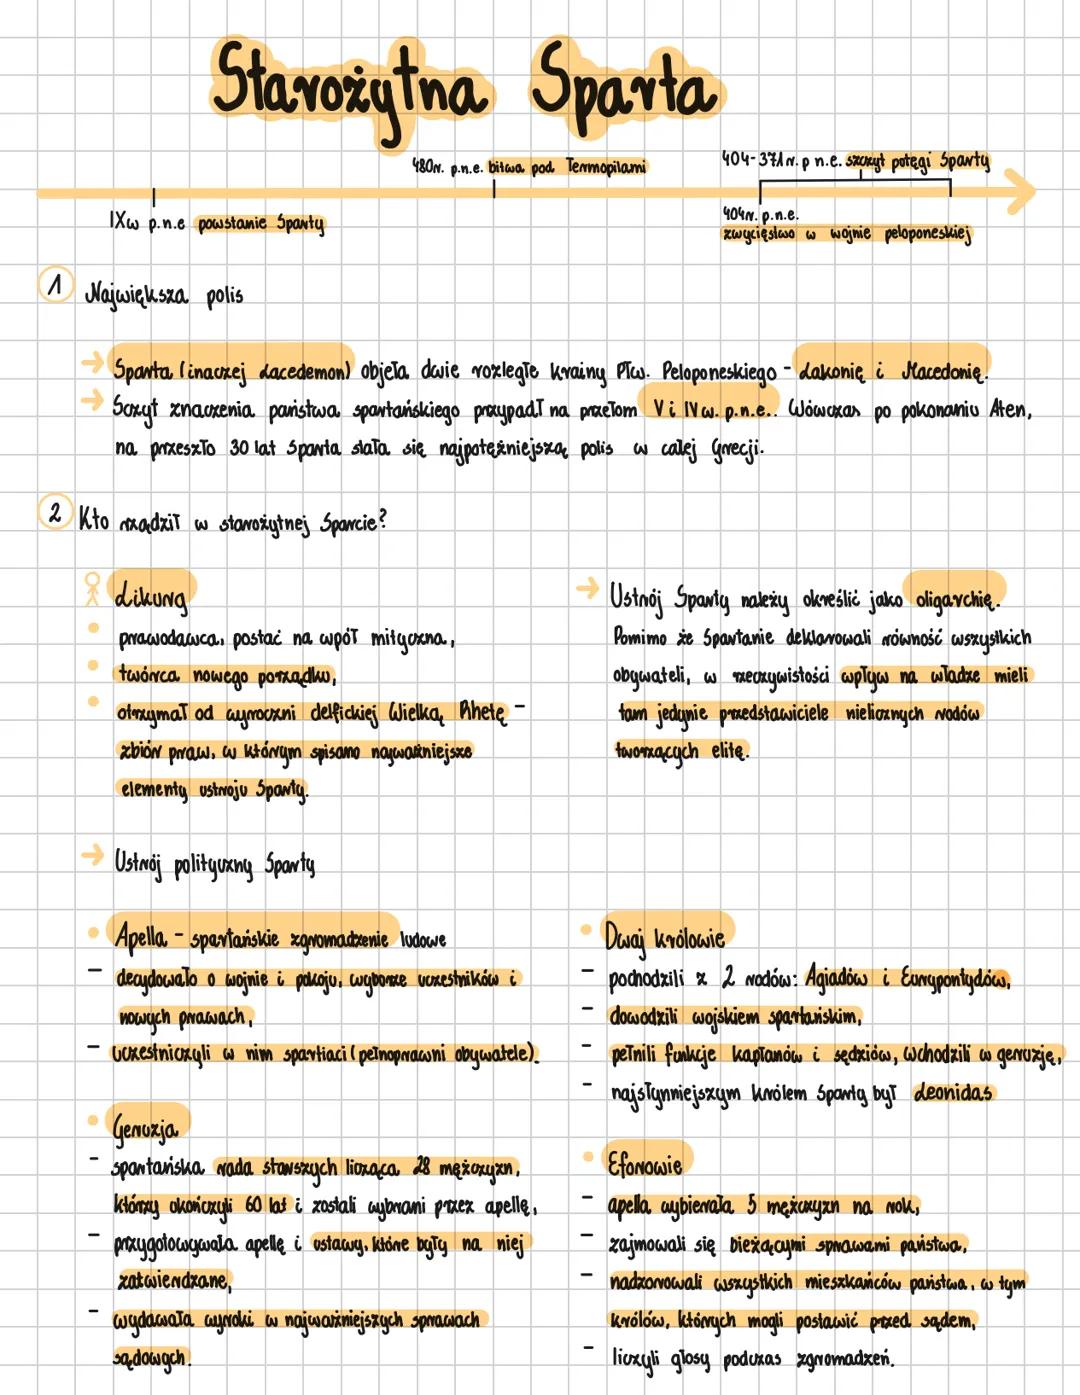 Starożytna Sparta
480r. p.n.e. bitwa pod Termopilami
404-371r. p n.e. szczyt potęgi Sparty
IXw p.n.e powstanie Sparty
404r. p.n.e.
zwycięstwo w wojnie peloponeskiej
1 Największa polis
→ Sparta (inaczej Lacedemon) objęła dwie rozległe krainy Płw. Peloponeskiego - Lakonię i Macedonię.
→ Sczyt znaczenia państwa spartańskiego przypadł na przełom V i IV w. p.n.e.. Wówczas po pokonaniu Aten,
na przeszło 30 lat Sparta stała się najpotężniejszą polis w całej Grecji.
2 Kto rządził w starożytnej Sparcie?
Likurg
• prawodawca, postać na wpół mityczna,
• twórca nowego porządku,
• otrzymał od wyroczni delfickiej Wielką Rhetę -
zbiór praw, w którym spisano najważniejsze
elementy ustroju Sparty.
→ Ustrój Sparty należy określić jako oligarchię.
Pomimo że Spartanie deklarowali równość wszystkich
obywateli, w rzeczywistości wpływ na władze mieli
tam jedynie przedstawiciele nielicznych rodów
tworzących elitę.
→ Ustrój polityczny Sparty
• Apella - spartańskie zgromadzenie ludowe
- decydowało o wojnie i pokoju, wyborze uczestników i
nowych prawach,
- uczestniczyli w nim spartiaci (pełnoprawni obywatele).
• Geruzja
- spartańska rada starszych licząca 28 mężczyzn,
którzy okończyli 60 lat i zostali wybrani przez apellę,
- przygotowywała apellę i ustawy, które były na niej
zatwierdzane,
- wydawała wyroki w najważniejszych sprawach
sądowych.
• Dwaj królowie
- pochodzili z 2 rodów: Agiadów i Eurypontydów,
- dowodzili wojskiem spartańskim,
- pełnili funkcje kapłanów i sędziów, wchodzili w geruzję,
- najsłynniejszym królem Sparty był Leonidas
• Eforowie
- apella wybierała 5 mężczyzn na rok,
- zajmowali się bieżącymi sprawami państwa,
- nadzorowali wszystkich mieszkańców państwa, w tym
królów, których mogli postawić przed sądem,
- liczyli głosy podczas zgromadzeń.